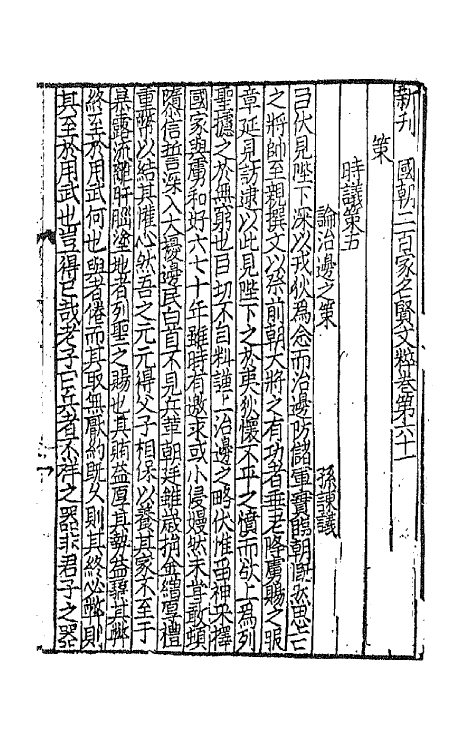 新刊 國朝二百家名賢文粹卷第六十一
策
時議策五
論治邊之策 孫諫議
臣伏見陛下深以戎狄為念而治邊防諸軍實熊朝財玄思古
之將帥至親撰文以祭前朝大將之有功者垂老降虜賜之服
章延見訪逮以此見陛下之於夷狄懷不平之憤而欲上為列
聖攄之於無窮也臣切不自料謹上治邊之略伏惟留神采擇
國家與虜和好六七十年雖時有邀求或小侵嫚然未甞敢頓
隳信誓深入大擾邊民白首不見兵革朝廷雖歲捐金繒厚禮
重幣以結其懽心然吾之元元得父子相保以養其家不至于
暴露流離肝腦塗地者列聖之賜也其賄益厚其勢益驕其弊
終至於用武何也與者倦而其取無厭約既久則其終必弊則
其至於用武也豈得已哉老子曰兵者不祥之器非君子之器